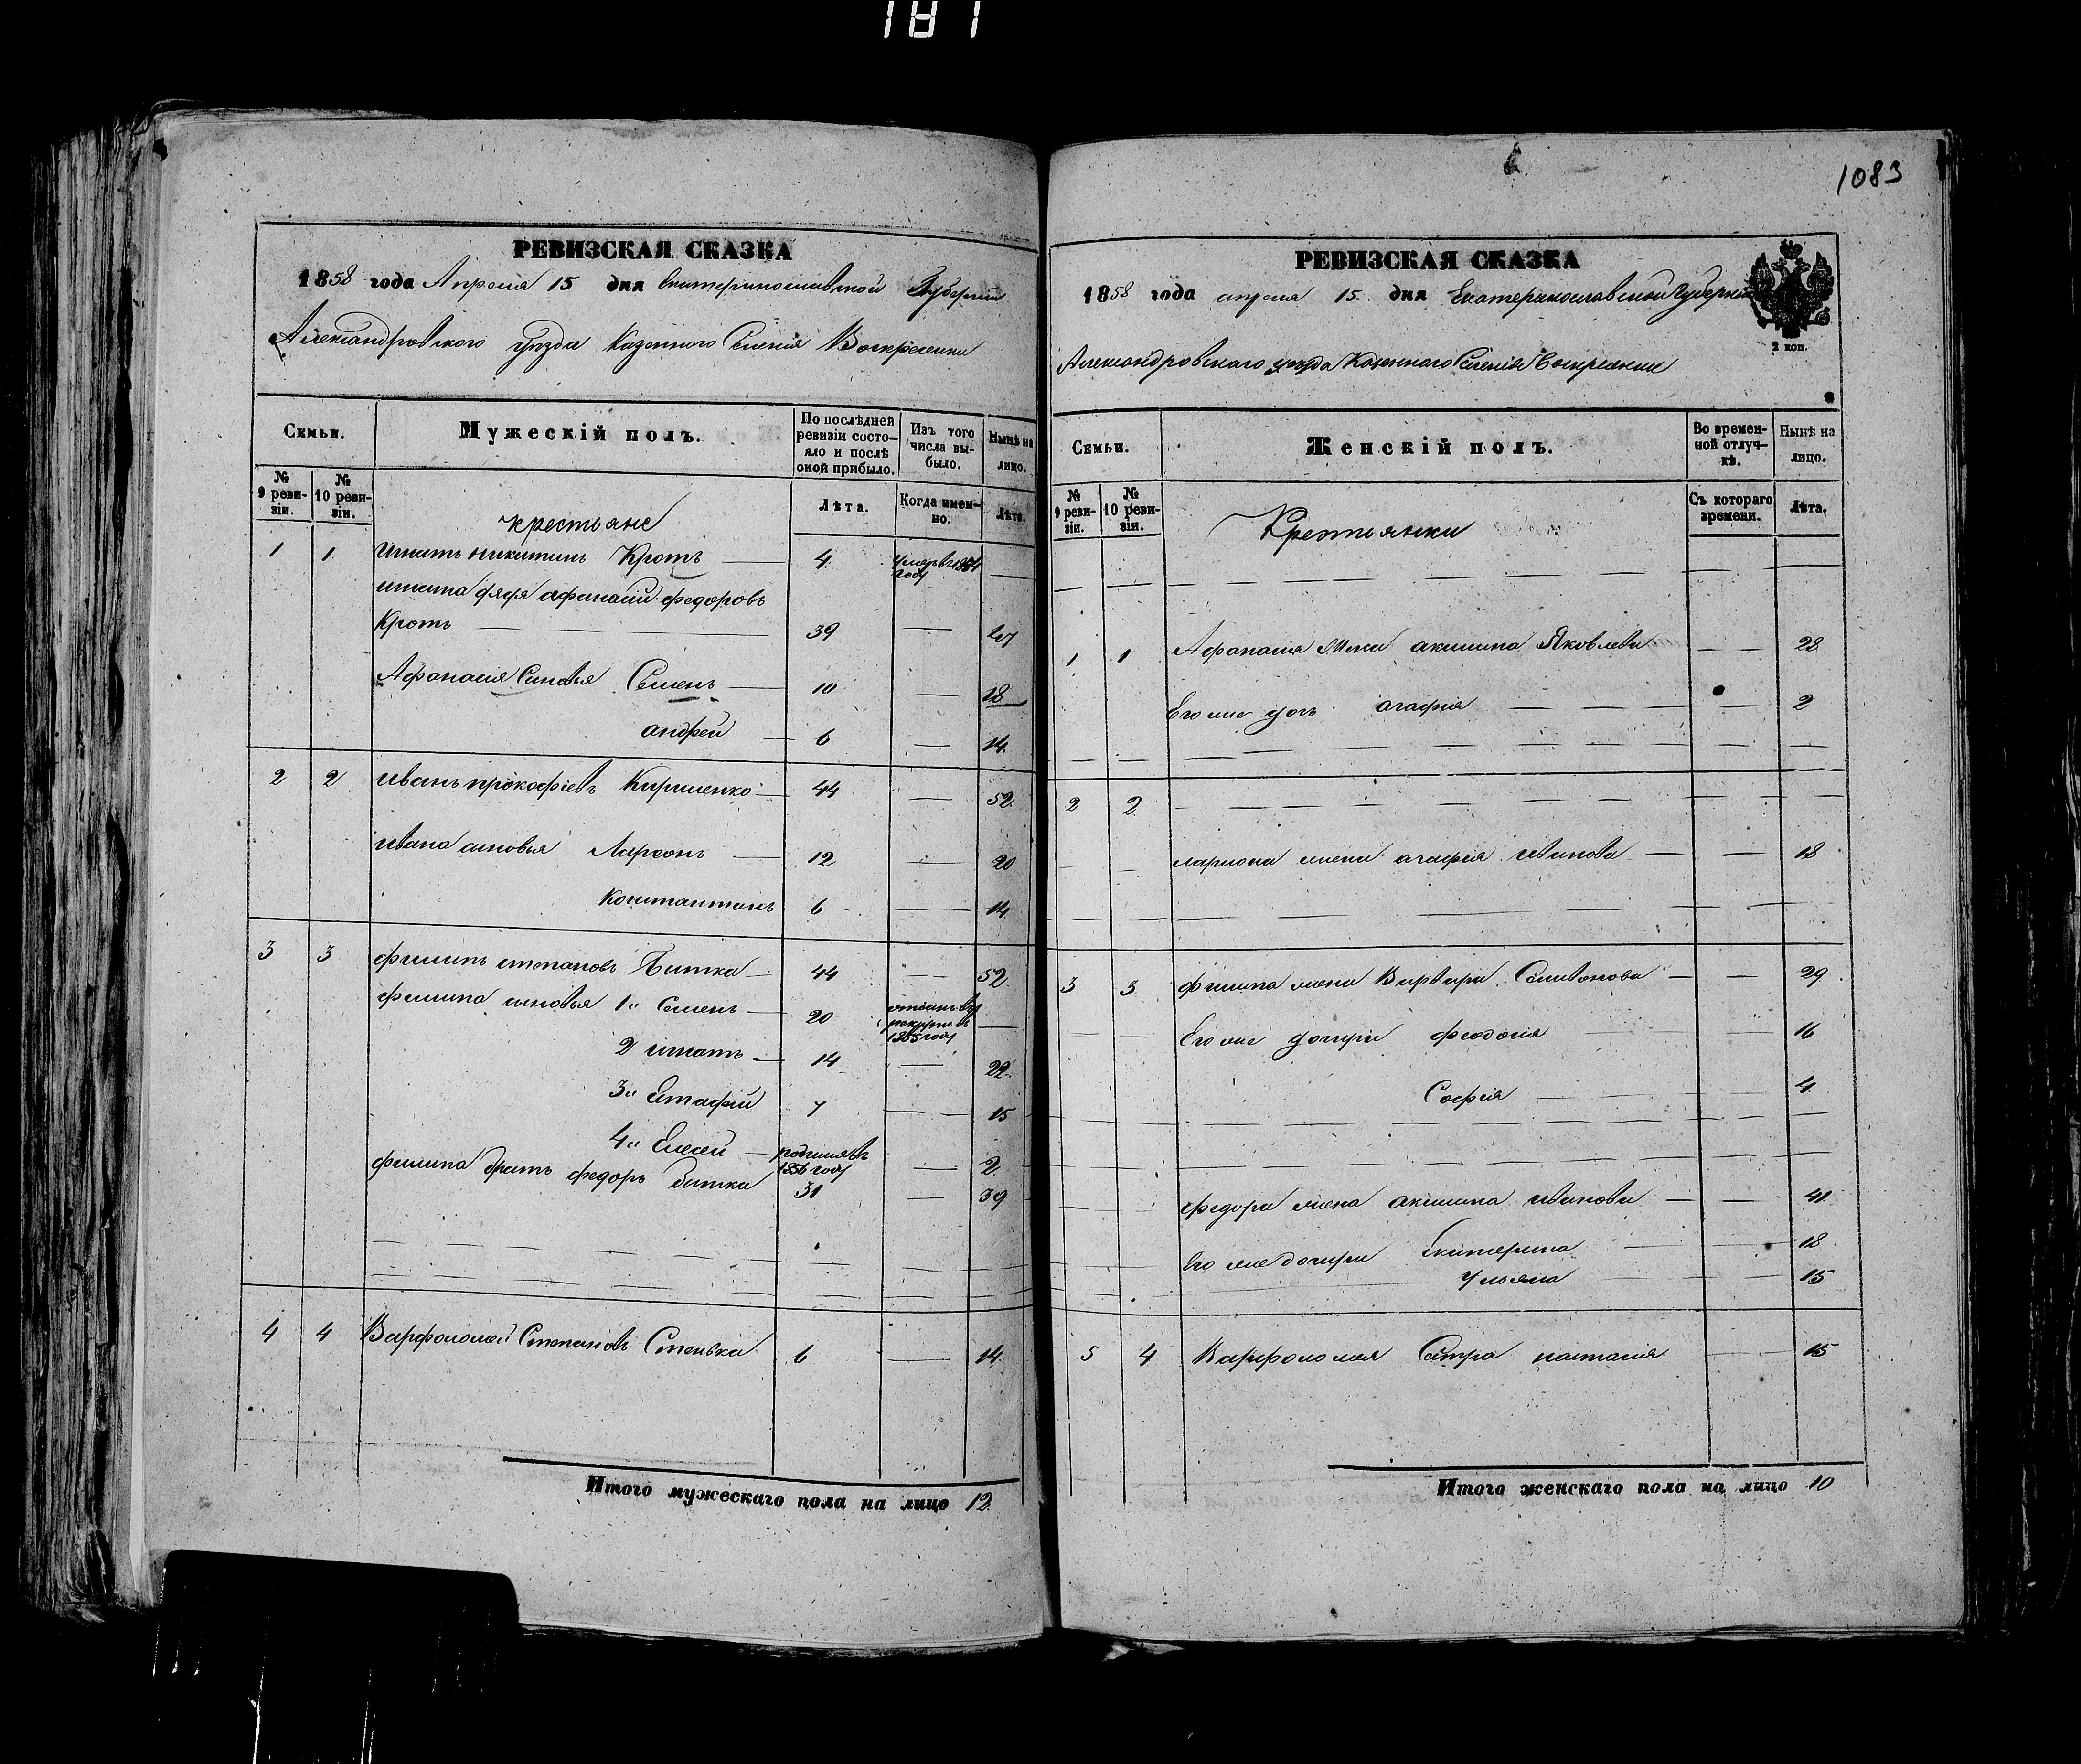 181
РЕВИЗСКАЯ СКАЗКА
1858 года Апреля 15 дня Екатеринославской Губернии
Александровского уѣзда Казенного Селенія Воскресенки
Семьи.
Мужескій полъ.
По послѣдней ревизіи состояло и послѣ оной прибыло.
Изъ того числа выбыло.
Нынѣ на лицо.
№ 9 ревизіи.
№ 10 ревизіи.
Лѣта.
Когда именно.
Лѣта.
крестьяне
1. 1. Игнатъ никитинъ Кротъ 4 умеръ в 1854 году
игната дядя афанасий федоровъ
Кротъ 39 47
Афанасія Сыновья Семенъ 10 18
андрей 6 14.
2 2 иванъ прокофіевъ Кириленко 44 52.
ивана сыновья Ларионъ 12 20
Константинъ 6 14.
3 3 филипъ степановъ Битка 44 52.
филипа сыновья 1й Семенъ 20 отданъ в рекруты в 1855 году
2 игнатъ 14 22.
3й Евтафій 7 15
4й Елесей родился в 1856 году 2.
филипа братъ федоръ битка 31 39
4 4 Варфоломей Степановъ Стенька 6 14.
Итого мужескаго пола на лицо 12.
1083
РЕВИЗСКАЯ СКАЗКА
1858 года апреля 15. дня Екатеринославской Губернии
2 коп.
Александровского уезда Казенного Селенія Воскресенки
Семьи.
Женскій полъ.
Во временной отлучкѣ.
Нынѣ на лицо.
№ 9 ревизіи.
№ 10 ревизіи.
Съ котораго времени.
Лѣта.
Крестьянки
1 1 Афанасія Жена акилина Яковлева 28
Его же дочь агафия 2
2 2.
лариона жена агафия иванова 18
3 3 филипа жена Варвара Селивонова 29
Его же дочери феодосия 16
София 4
федора жена акилина иванова 41
Его же дочери Екатерина 18
Ульяна 15
5 4 Варфоломея Сестра настасия 15
Итого женскаго пола на лицо 10